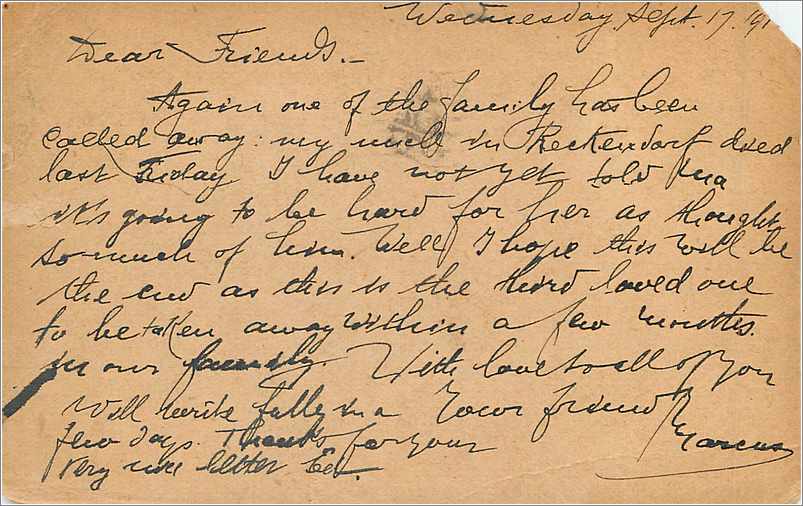 Wednesday, Sept. 17. 191
Dear Friends.—
Again one of the family has been
called away: my uncle in Reckendorf died
last Friday I have not yet told Ma
it's going to be hard for her as thought
so much of him. Well I hope this will be
the end as this is the third loved one
to be taken away within a few months.
in our family. With love to all of you
Will write fully in a Your friend
few days. Thanks for your Marcus
very nice letter Ed.